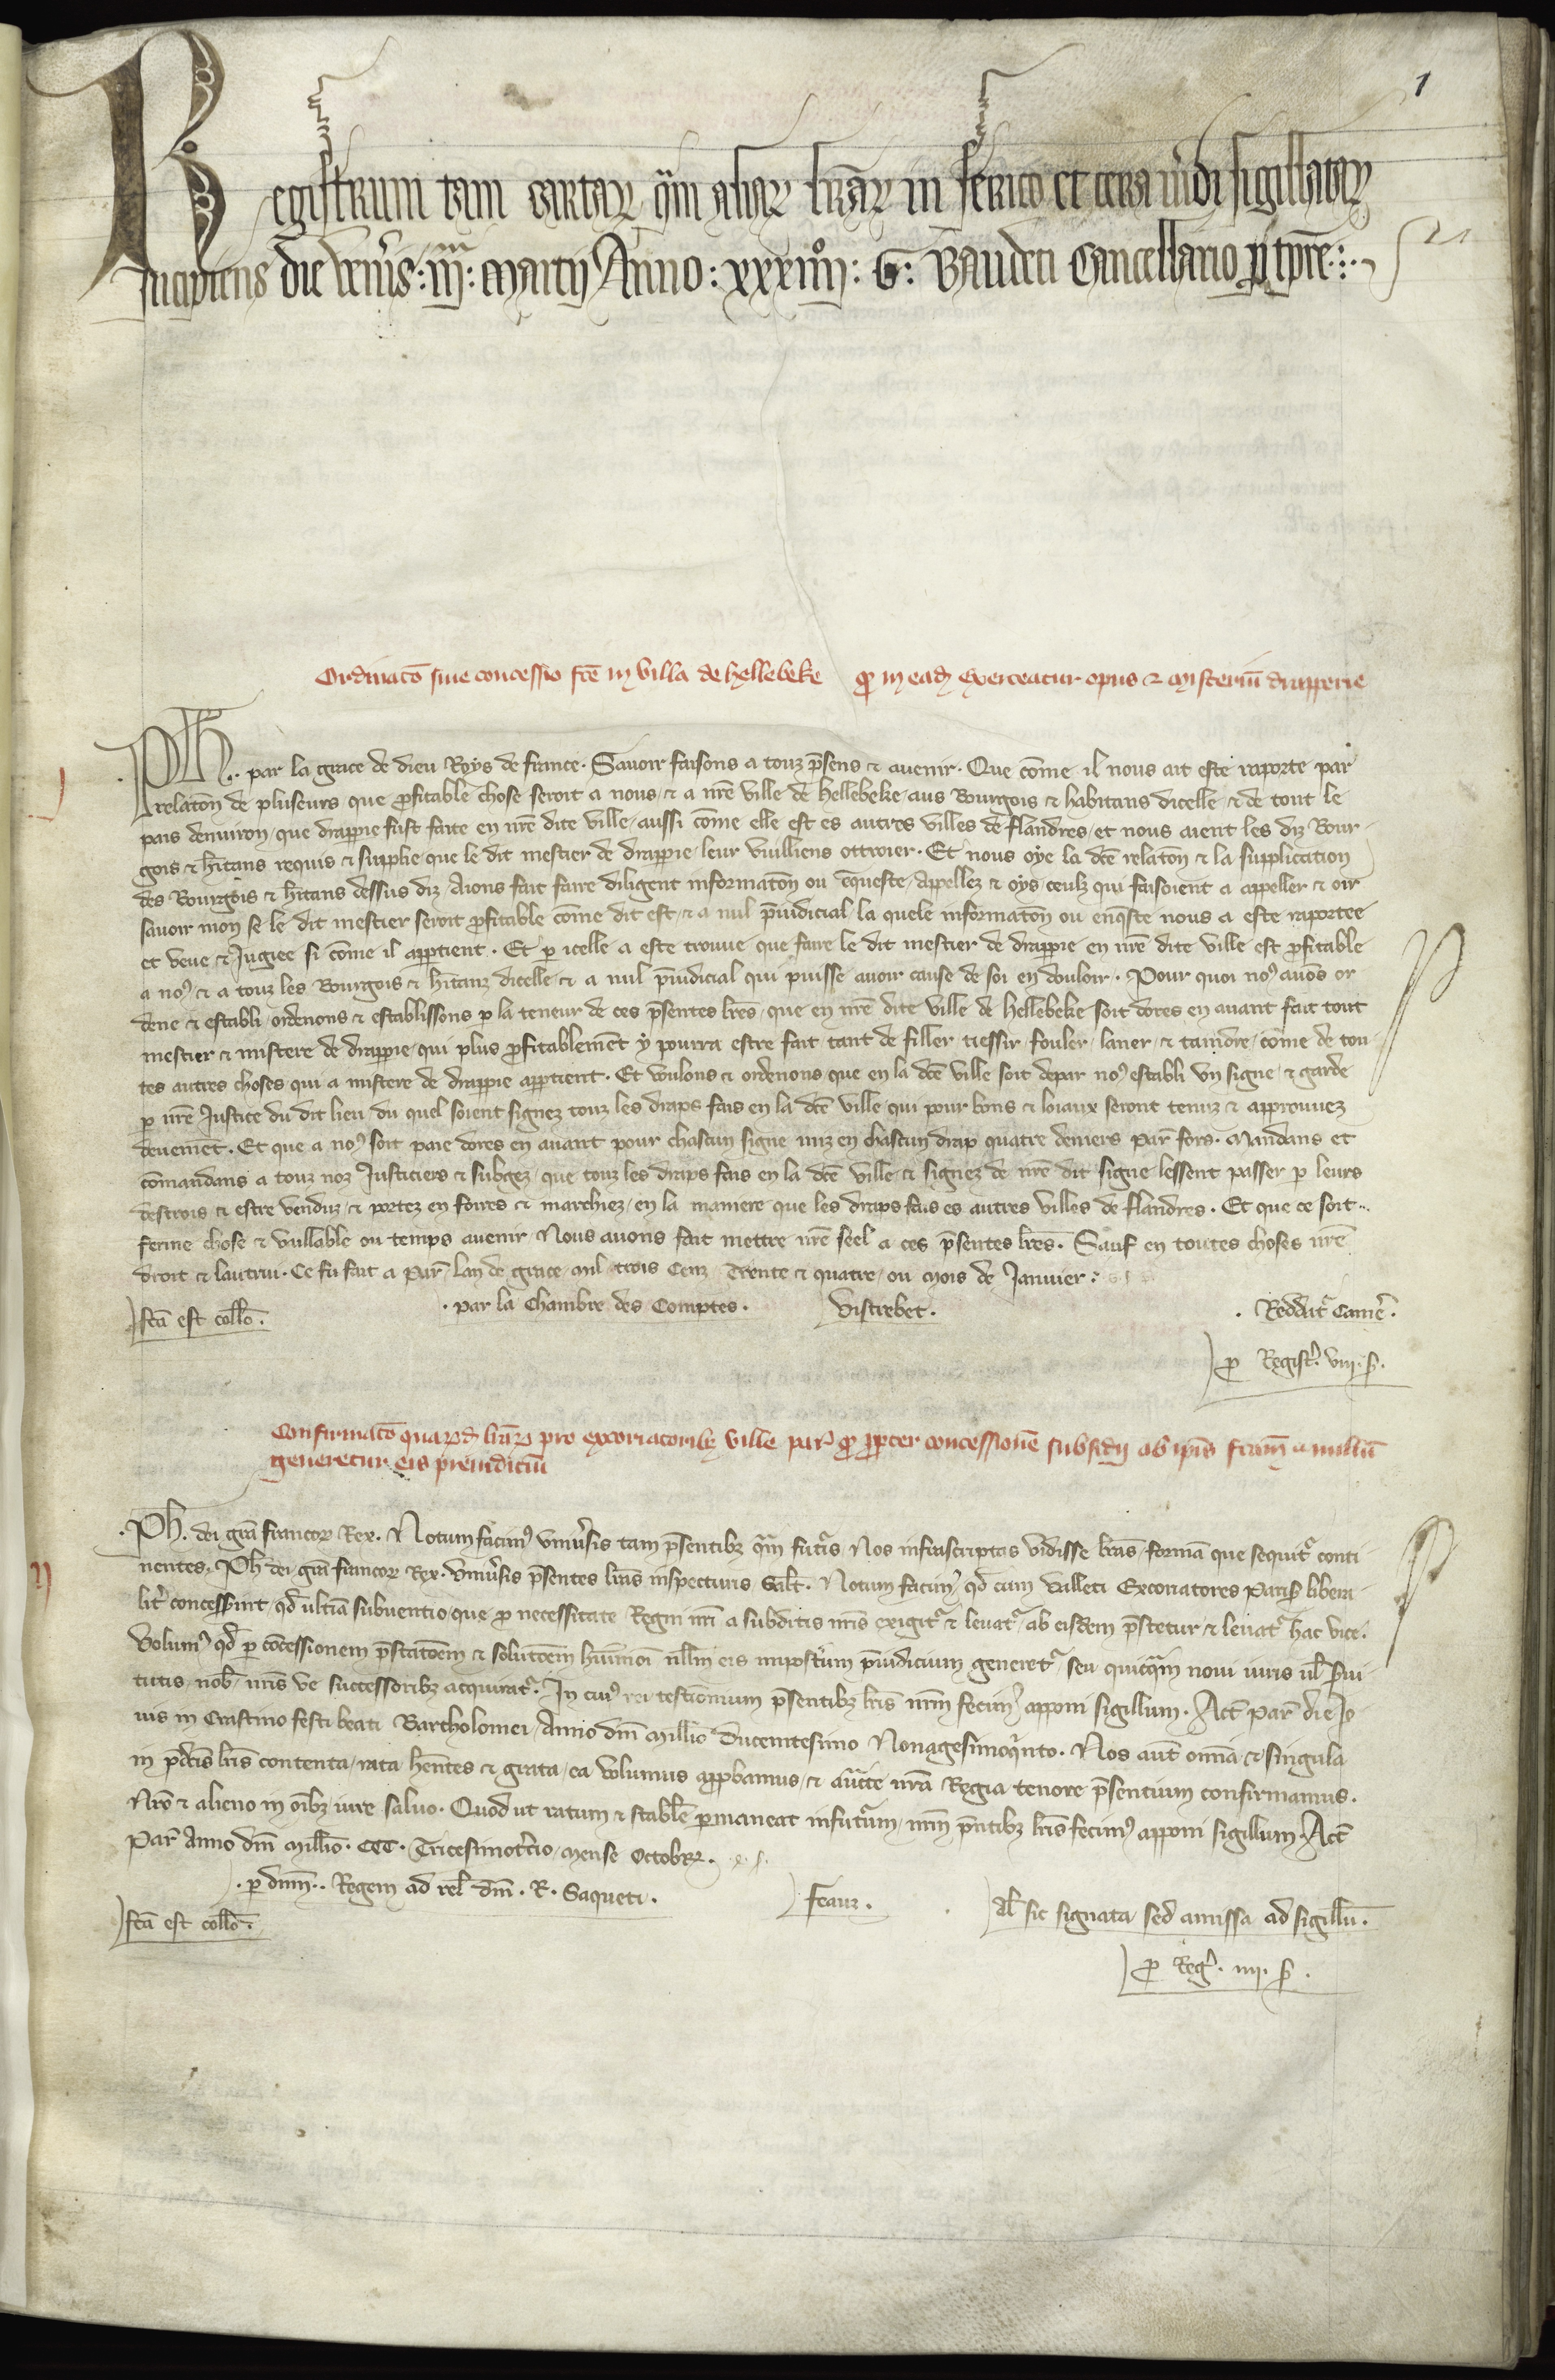 1
Registrum tam cartaꝝ qᷓm aliaꝝ lr̄aꝝ in serico et cera viridi sigillataꝝ
Incipiens die ven̄is : iijᵃ : marcij Anno : xxxiiijᵒ : G : Baudeti Cancellario ꝑ tp̄re :
Ordinacō siue concessio fc̄e in villa de hellebeke ꝙ in eadē exerceatur opus & misteriū drapperie
j
Ph. par la grace de dieu Roys de france. Sauoir faisons a touz p̄sens & auenir. Que cōme il nous ait este raporte par
relatōn de pluseurs que ꝓfitable chose seroit a nous & a nr̄e ville de hellebeke aus Bourgois & habitans dicelle & de tout le
pais denuiron, que drapꝑie fust faite en nr̄e dite ville, aussi cōme elle est es autres villes de flandres, et nous aient les diz Bour
gois & hītans requis & supplie que le dit mestier de drapꝑie leur vuilliens ottroier. Et nous oye la dc̄e relatōn & la supplication
des Bourgois & hītans dessus diz Aions fait faire diligent informatōn ou ēqueste, Appellez & oys ceulz qui faisoient a appeller & oir
sauoir mon se le dit mestier seroit ꝓfitable cōme dit est & a nul p̄iudicial, la quele informatōn ou enq̄ste nous a este raportee
et veue & Jugiee si cōme il apꝑtient. Et ꝑ icelle a este trouue que faire le dit mestier de drapꝑie en nr̄e dite ville est ꝓfitable
a noꝰ & a touz les Bourgois & hītanz dicelle & a nul p̄iudicial qui puisse auoir cause de soi en douloir. Pour quoi noꝰ auōs or
dene & establi, ordenons & establissons ꝑ la teneur de ces p̄sentes lr̄es, que en nr̄e dite ville de hellebeke soit dores en auant fait tout
mestier & mistere de drapꝑie, qui plus ꝓfitablemēt y pourra estre fait, tant de filler, tiessir, fouler, laner, & taindre, cōme de tou
tes autres choses qui a mistere de drapꝑie apꝑtient. Et voulons & ordenons que en la dc̄e ville soit depar noꝰ establi vn signe, & garde
ꝑ nr̄e Justice du dit lieu du quel soient signez touz les draps fais en la dc̄e ville, qui pour bons & loiaux seront tenuz & approuuez
deuemēt. Et que a noꝰ soit paie dores en auant pour chascun signe miz en chascun drap quatre deniers par̄ fors. Mandans et
cōmandans a touz noz Justiciers & subgez, que touz les draps fais en la dc̄e ville & signez de nr̄e dit signe lessent passer ꝑ leurs
destrois & estre venduz, & portez en foires & marchiez, en la maniere que les draps fais es autres villes de flandres. Et que ce soit
ferme chose & vullable ou temps auenir Nous auons fait mettre nr̄e seel a ces p̄sentes lr̄es. Sauf en toutes choses nr̄e
droit & lautrui. Ce fu fait a par̄ lan de grace mil trois Cenz Trente & quatre, ou mois de Januier.
fc̄a est collō. . par la Chambre des Comptes. Vistrebet. . Reddit̄ Camē.
ꝓ Registꝰ. viij. s̄.
Confirmacō quaꝝd̄ lr̄aꝝ pro excoriatoribꝫ ville par̄ ꝙ ꝓpter concessionē subsidij ab ip̄is fc̄am nullū
generetur eis preiudiciū
ij
Ph. dei gr̄a francoꝝ Rex. Notum facimꝰ vniu̾sis tam p̄sentibꝫ qᷓm futᷓis Nos infrascriptas vidisse lr̄as formā que sequit̄ conti
nentes. Ph dei gr̄a francoꝝ Rex. Vniu̾sis p̄sentes lr̄as inspecturis Salt̄. Notum facimꝰ qd̄ cum Valleti Excoriatores Paris̄ libera
lit̄ concesserint, qd̄ vltīa subuentio, que ꝓ necessitate Regni nr̄i a subditis nr̄is exigit̄ & leuat̄, ab eisdem p̄stetur & leuat̄ hac vice.
Volumꝰ qd̄ ꝑ cōcessionem p̄statōem & solutōem huiꝰmōi nllm̄ eis impost̄um p̄iudicium generet̄ seu quicqᷓm noui iuris vl̄ s̄ui
tutis, nob̄ nr̄is ve successoribꝫ acquirat̄. In cuiꝰ rei testimonium p̄sentibꝫ lr̄is nr̄m fecimꝰ apponi sigillum. Act̄ par̄ die Jo
uis in Crastino festi beati Bartholomei, Anno dn̄i Millīo Ducentesimo Nonagesimoqᷓnto. Nos aut̄ om̄ia & singula
in p̄dc̄is lr̄is contenta, rata hn̄tes & grata, ea volumus apꝓbamus, & auct̄te nr̄a Regia tenore p̄sentium confirmamus.
Nr̄o & alieno in oībꝫ iure saluo. Quod ut ratum & stabile ꝑmaneat infutᷓum, nr̄m p̄ntibꝫ lr̄is fecimꝰ apponi sigillum. Act̄
par̄ Anno dn̄i Millīo. CCC. Tricesimot̄cio, mense Octobr̄.
. ꝑ dn̄m.. Regem ad rel̄ dn̄i. R. Saqueti. Feauz. Al̄ sic signata sed amissa ad sigillū.
fc̄a est collō.
ꝓ Reg̾. iiij. s̄.